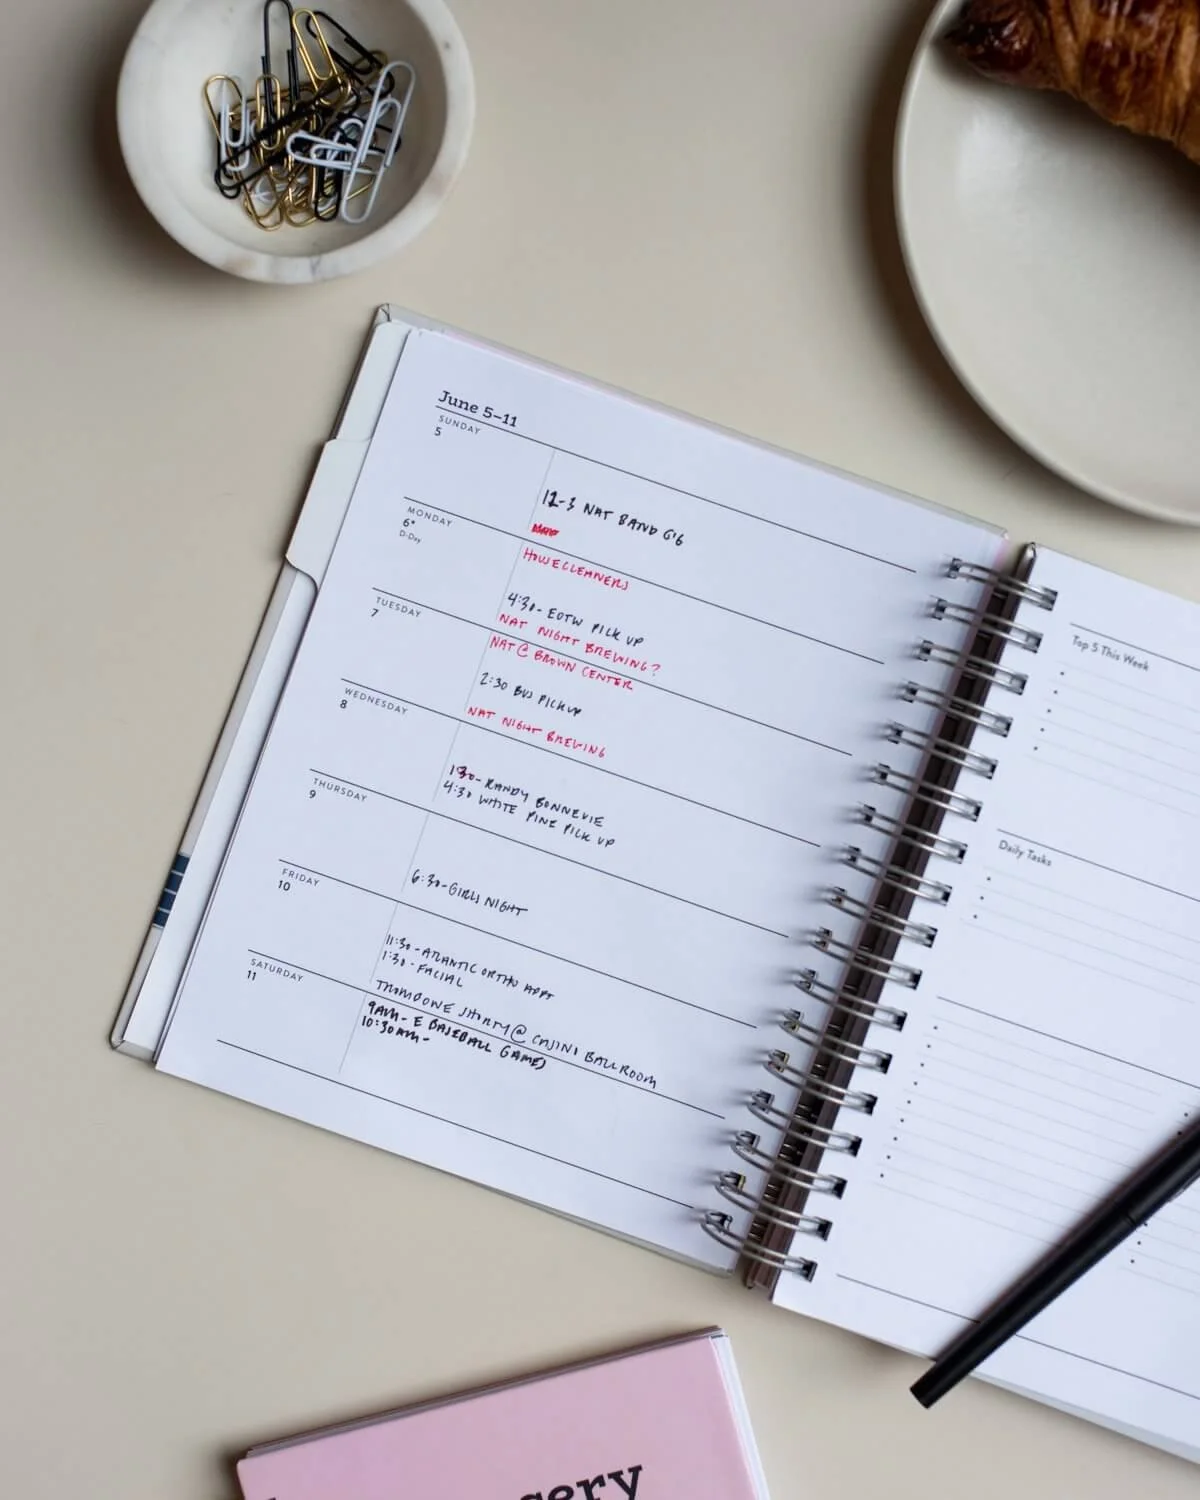 June 5–11
SUNDAY
5
12-3 NAT BAND GIG
MONDAY
6*
D-Day
HOWE CLEANERS
4:30- EOTW PICK UP
NAT NIGHT BREWING?
TUESDAY
7
NAT @ BROWN CENTER
2:30 BUS PICKUP
NAT NIGHT BREWING
WEDNESDAY
8
1:30- RANDY BONNEVIE
4:30 WHITE PINE PICK UP
THURSDAY
9
6:30-GIRLS NIGHT
FRIDAY
10
11:30 - ATLANTIC ORTHO APPT
1:30 - FACIAL
TROMBONE SHORTY @ CASINO BALLROOM
SATURDAY
11
9AM- E BASEBALL GAMES
10:30AM-
Top 5 This Week
Daily Tasks